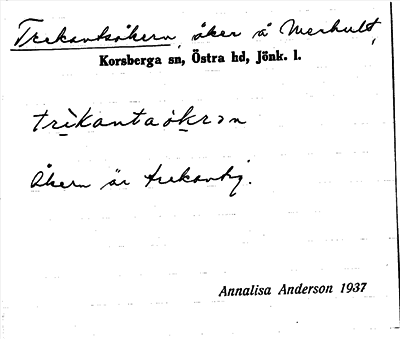 Trekantsåkern, åker å Merhult,
Korsberga sn, Östra hd, Jönk. l.
trekantaåkrən
Åkern är trekantig.
Annalisa Anderson 1937